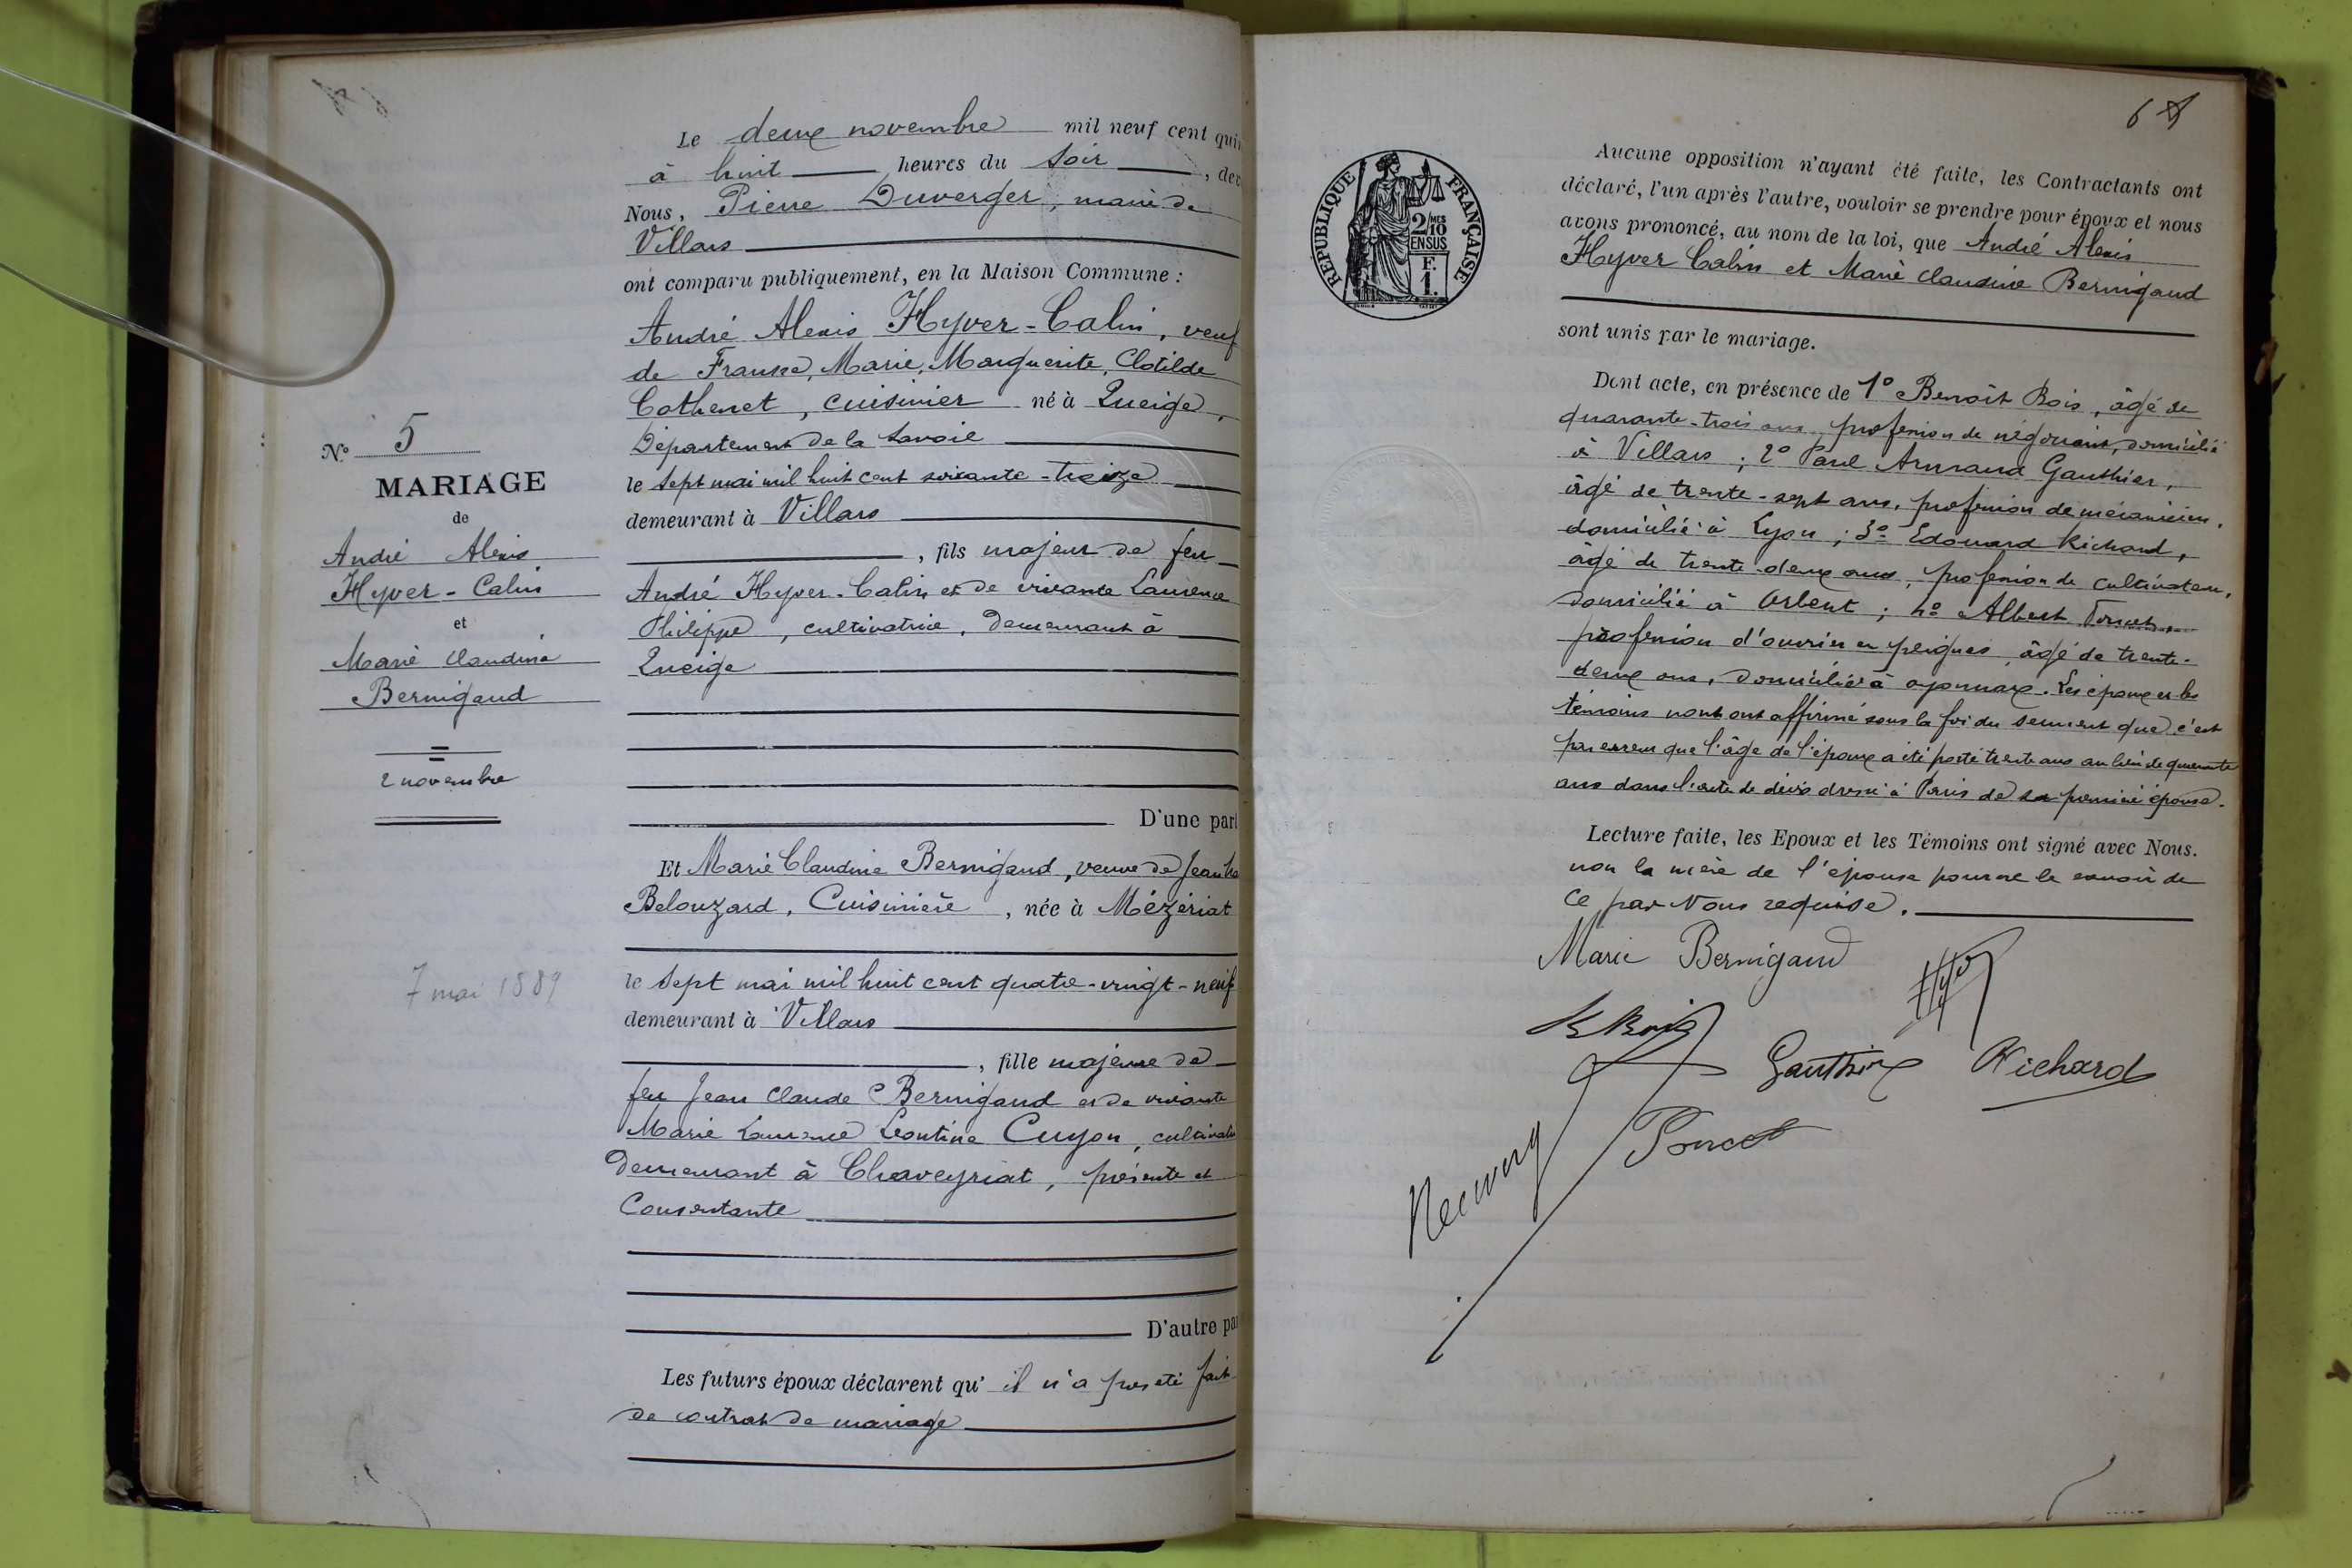 Le deux novembre mil neuf cent qui
à huit heures du soir, dev
Nous, Pierre Duverger, maire de
Villars
ont comparu publiquement, en la Maison Commune :
André Alexis Hyver-Calin, veuf
de France, Marie, Marguerite, Clotilde
Cothenet, cuisinier né à Queige,
Département de la Savoie
le sept mai mil huit cent soixante-treize
demeurant à Villars
, fils majeur de feu
André Hyver-Calin et de vivante Laurence
Philippe, cultivatrice, demeurant à
Queige
D'une part
Et Marie Claudine Bernigaud, veuve de Jean
Belouzard, Cuisinière, née à Mézériat
le sept mai mil huit cent quatre-vingt-neuf
demeurant à Villars
, fille majeure de
feu Jean Claude Bernigaud et de vivante
Marie Laurence Léontine Cuyon, cultivat
demeurant à Chaveyriat, présente et
Consentante
D'autre pa
Les futurs époux déclarent qu' il n'a pas été fait
de contrat de mariage
N° 5
MARIAGE
de
André Alexis
Hyver-Calin
et
Marie Claudine
Bernigaud
2 novembre
7 mai 1889
6
RÉPUBLIQUE FRANÇAISE
2/10 MES
EN SUS
F.
1.
Aucune opposition n'ayant été faite, les Contractants ont
déclaré, l'un après l'autre, vouloir se prendre pour époux et nous
avons prononcé, au nom de la loi, que André Alexis
Hyver Calin et Marie Claudine Bernigaud
sont unis par le mariage.
Dont acte, en présence de 1° Benoît Bois, âgé de
quarante-trois ans, profession de négociant, domicilié
à Villars ; 2° Paul Armand Gauthier,
âgé de trente-sept ans, profession de mécanicien,
domicilié à Lyon ; 3° Edouard Richard,
âgé de trente-deux ans, profession de cultivateur,
domicilié à Arbent ; 4° Albert Poncet,
profession d'ouvrier en peignes, âgé de trente-
deux ans, domicilié à Oyonnax. Les époux et les
témoins nous ont affirmé sous la foi du serment que c'est
par erreur que l'âge de l'époux a été porté trente ans au lieu de quarante
ans dans l'acte de décès dressé à Paris de sa première épouse.
Lecture faite, les Epoux et les Témoins ont signé avec Nous.
non la mère de l'épouse pour ne le savoir de
ce par Nous requise.
Marie Bernigaud
B Bois
Gauthier
Richard
Poncet